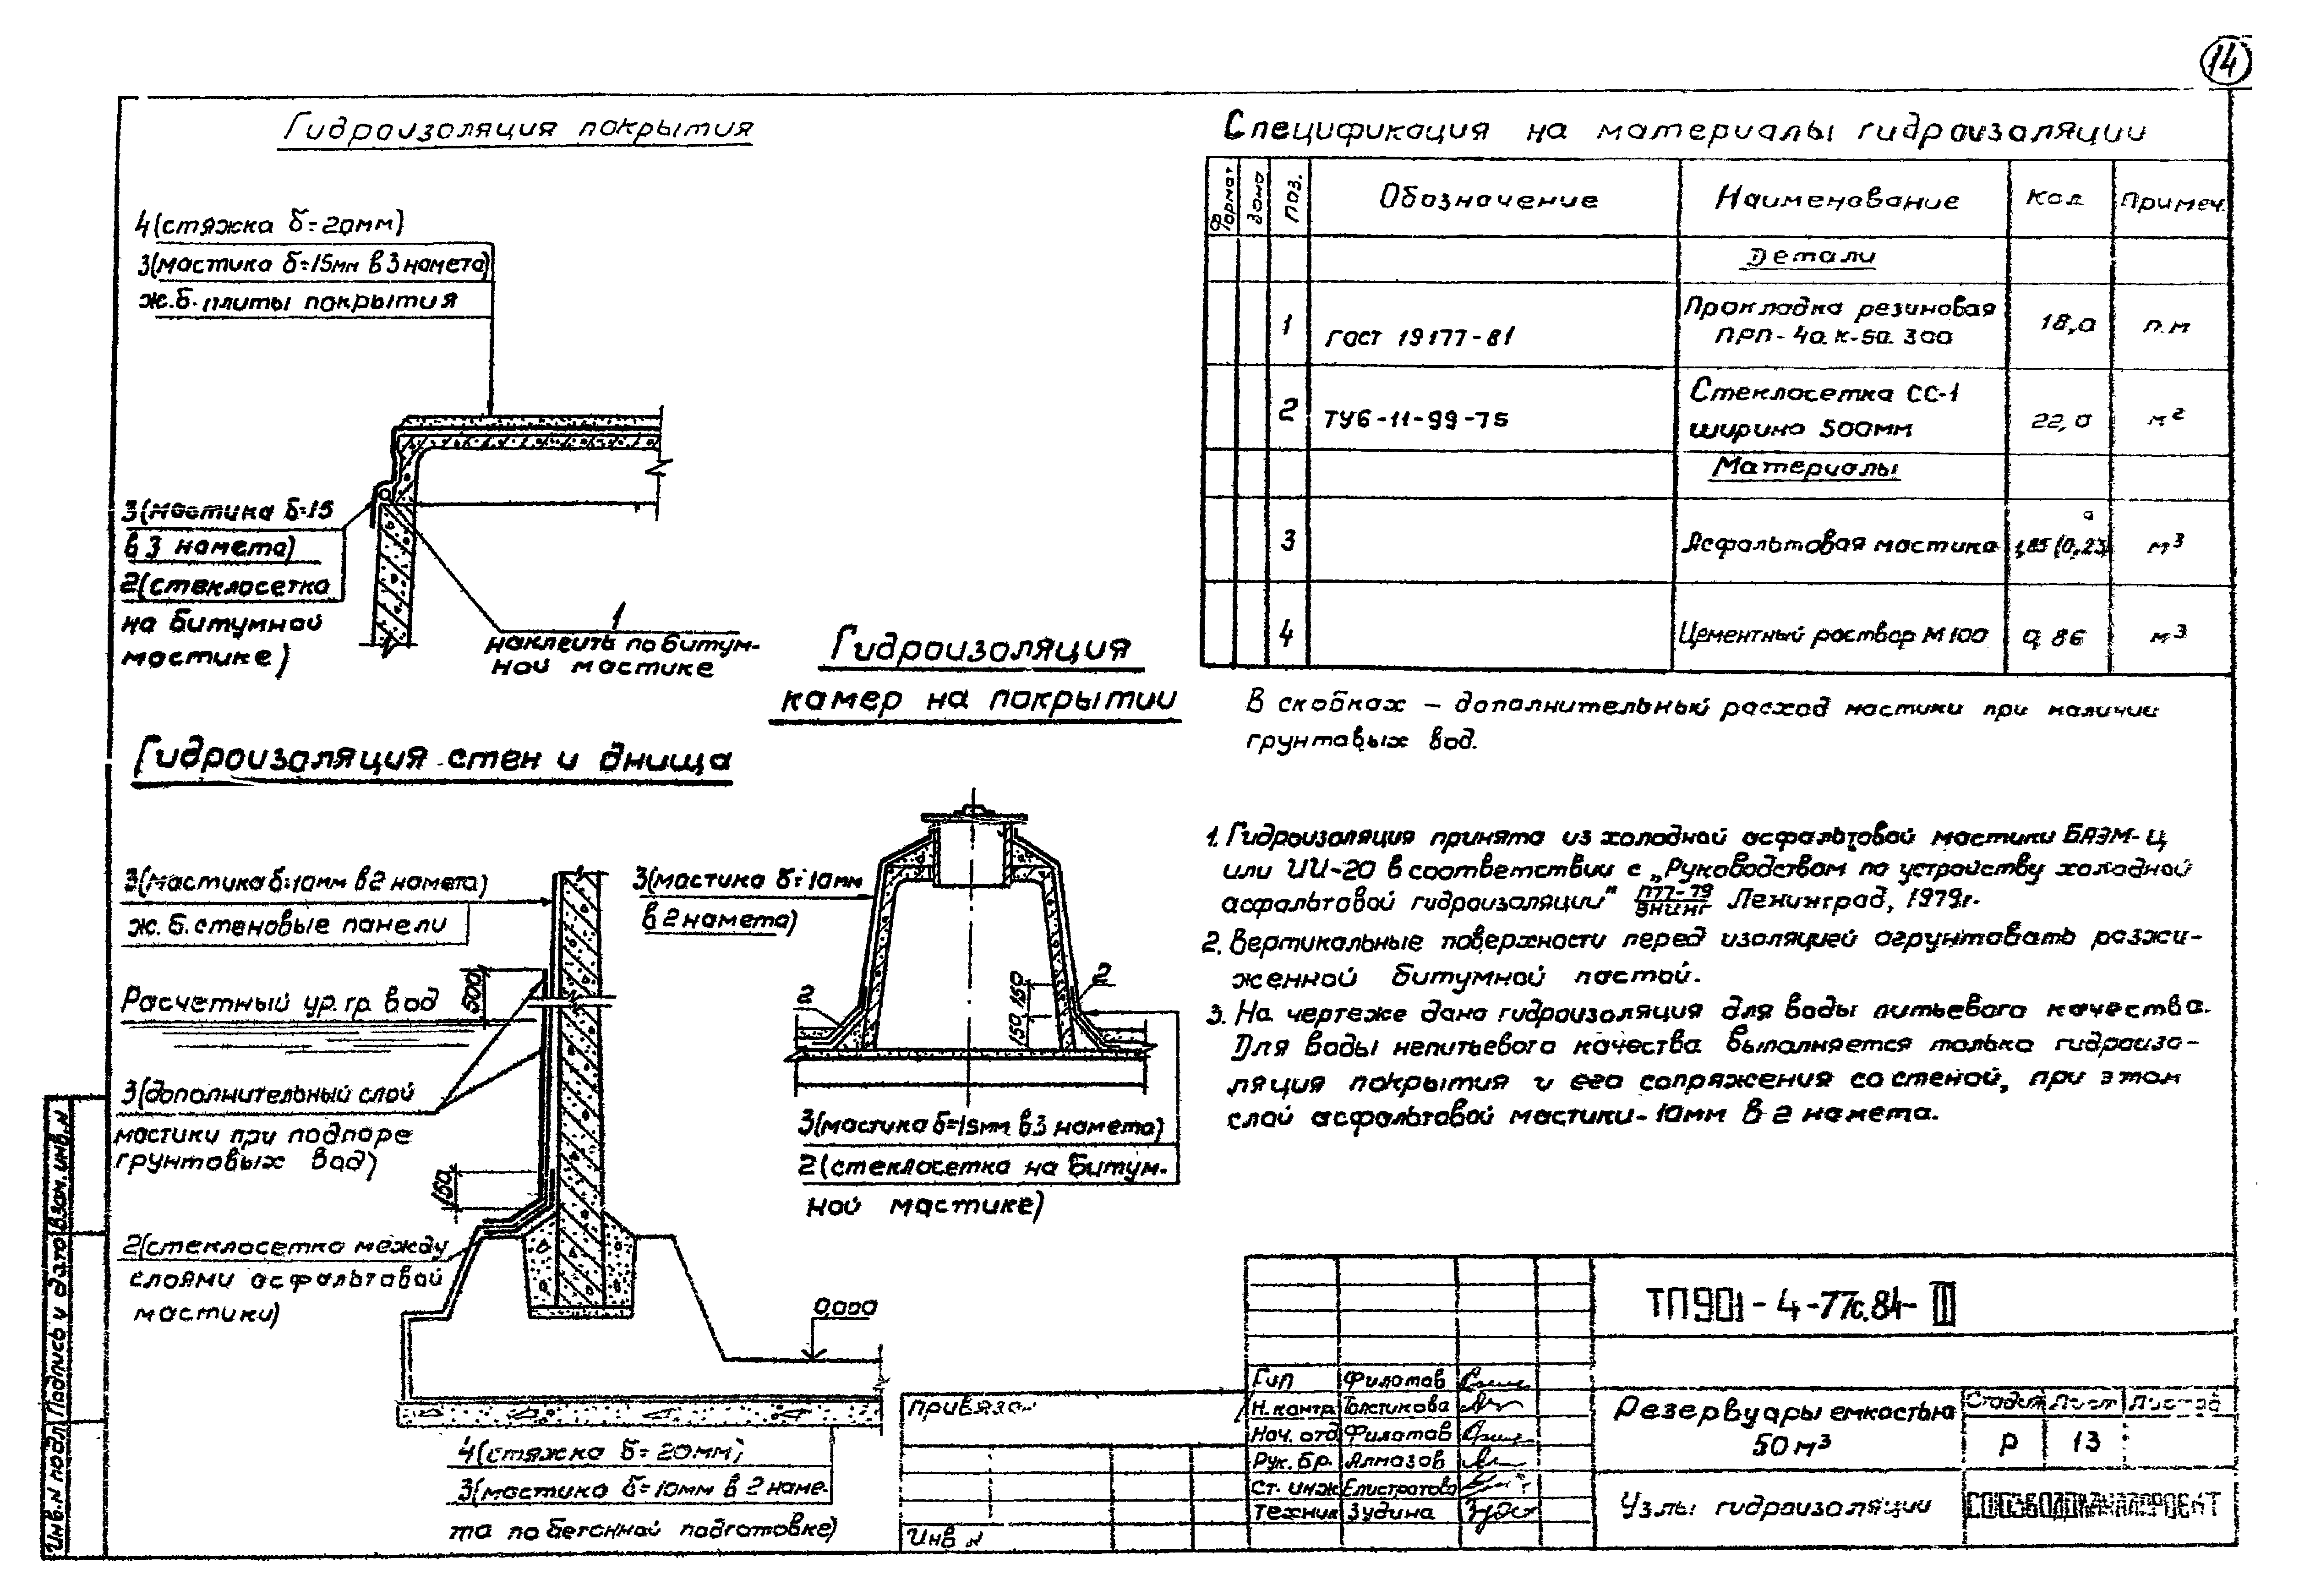 14
Гидроизоляция покрытия
4(стяжка δ=20мм)
3(мастика δ=15мм в 3 намета)
ж.б. плиты покрытия
3(мастика δ=15
в 3 намета)
2(стеклосетка
на битумной
мастике)
1
наклеить по битум-
ной мастике
Гидроизоляция
камер на покрытии
Гидроизоляция стен и днища
3(мастика δ=10мм в 2 намета)
ж.б. стеновые панели
Расчетный ур. гр. вод
500
3(дополнительный слой
мастики при подпоре
грунтовых вод)
150
2(стеклосетка между
слоями асфальтовой
мастики)
0,000
4(стяжка δ=20мм)
3(мастика δ=10мм в 2 наме-
та по бетонной подготовке)
3(мастика δ=10мм
в 2 намета)
2
2
150 150
3(мастика δ=15мм в 3 намета)
2(стеклосетка на битум-
ной мастике)
Спецификация на материалы гидроизоляции
Формат Зона Поз. Обозначение Наименование Кол Примеч.
Детали
1 ГОСТ 19177-81 Прокладка резиновая ПРП-40.К-60.300 18,0 п.м
2 ТУ6-11-99-75 Стеклосетка СС-1 ширина 500мм 22,0 м²
Материалы
3 Асфальтовая мастика 1,85 (0,23) м³
4 Цементный раствор М100 0,86 м³
В скобках – дополнительный расход мастики при наличии
грунтовых вод.
1. Гидроизоляция принята из холодной асфальтовой мастики БАЭМ-Ц
или ИИ-20 в соответствии с „Руководством по устройству холодной
асфальтовой гидроизоляции" П77-79/ВНИИГ Ленинград, 1979г.
2. Вертикальные поверхности перед изоляцией огрунтовать разжи-
женной битумной пастой.
3. На чертеже дана гидроизоляция для воды питьевого качества.
Для воды непитьевого качества выполняется только гидроизо-
ляция покрытия и его сопряжения со стеной, при этом
слой асфальтовой мастики-10мм в 2 намета.
ТП901-4-77с.84-III
Гип Филатов
Н.контр. Толстикова
Нач. отд Филатов
Рук. бр. Алмазов
Ст. инж Елистратова
Техник Зудина
Резервуары емкостью
50м³
Стадия Лист Листов
Р 13
Узлы гидроизоляции
СОЮЗВОДОКАНАЛПРОЕКТ
Привязан
Инв N
Инв. N подл. Подпись и дата Взам. инв. N